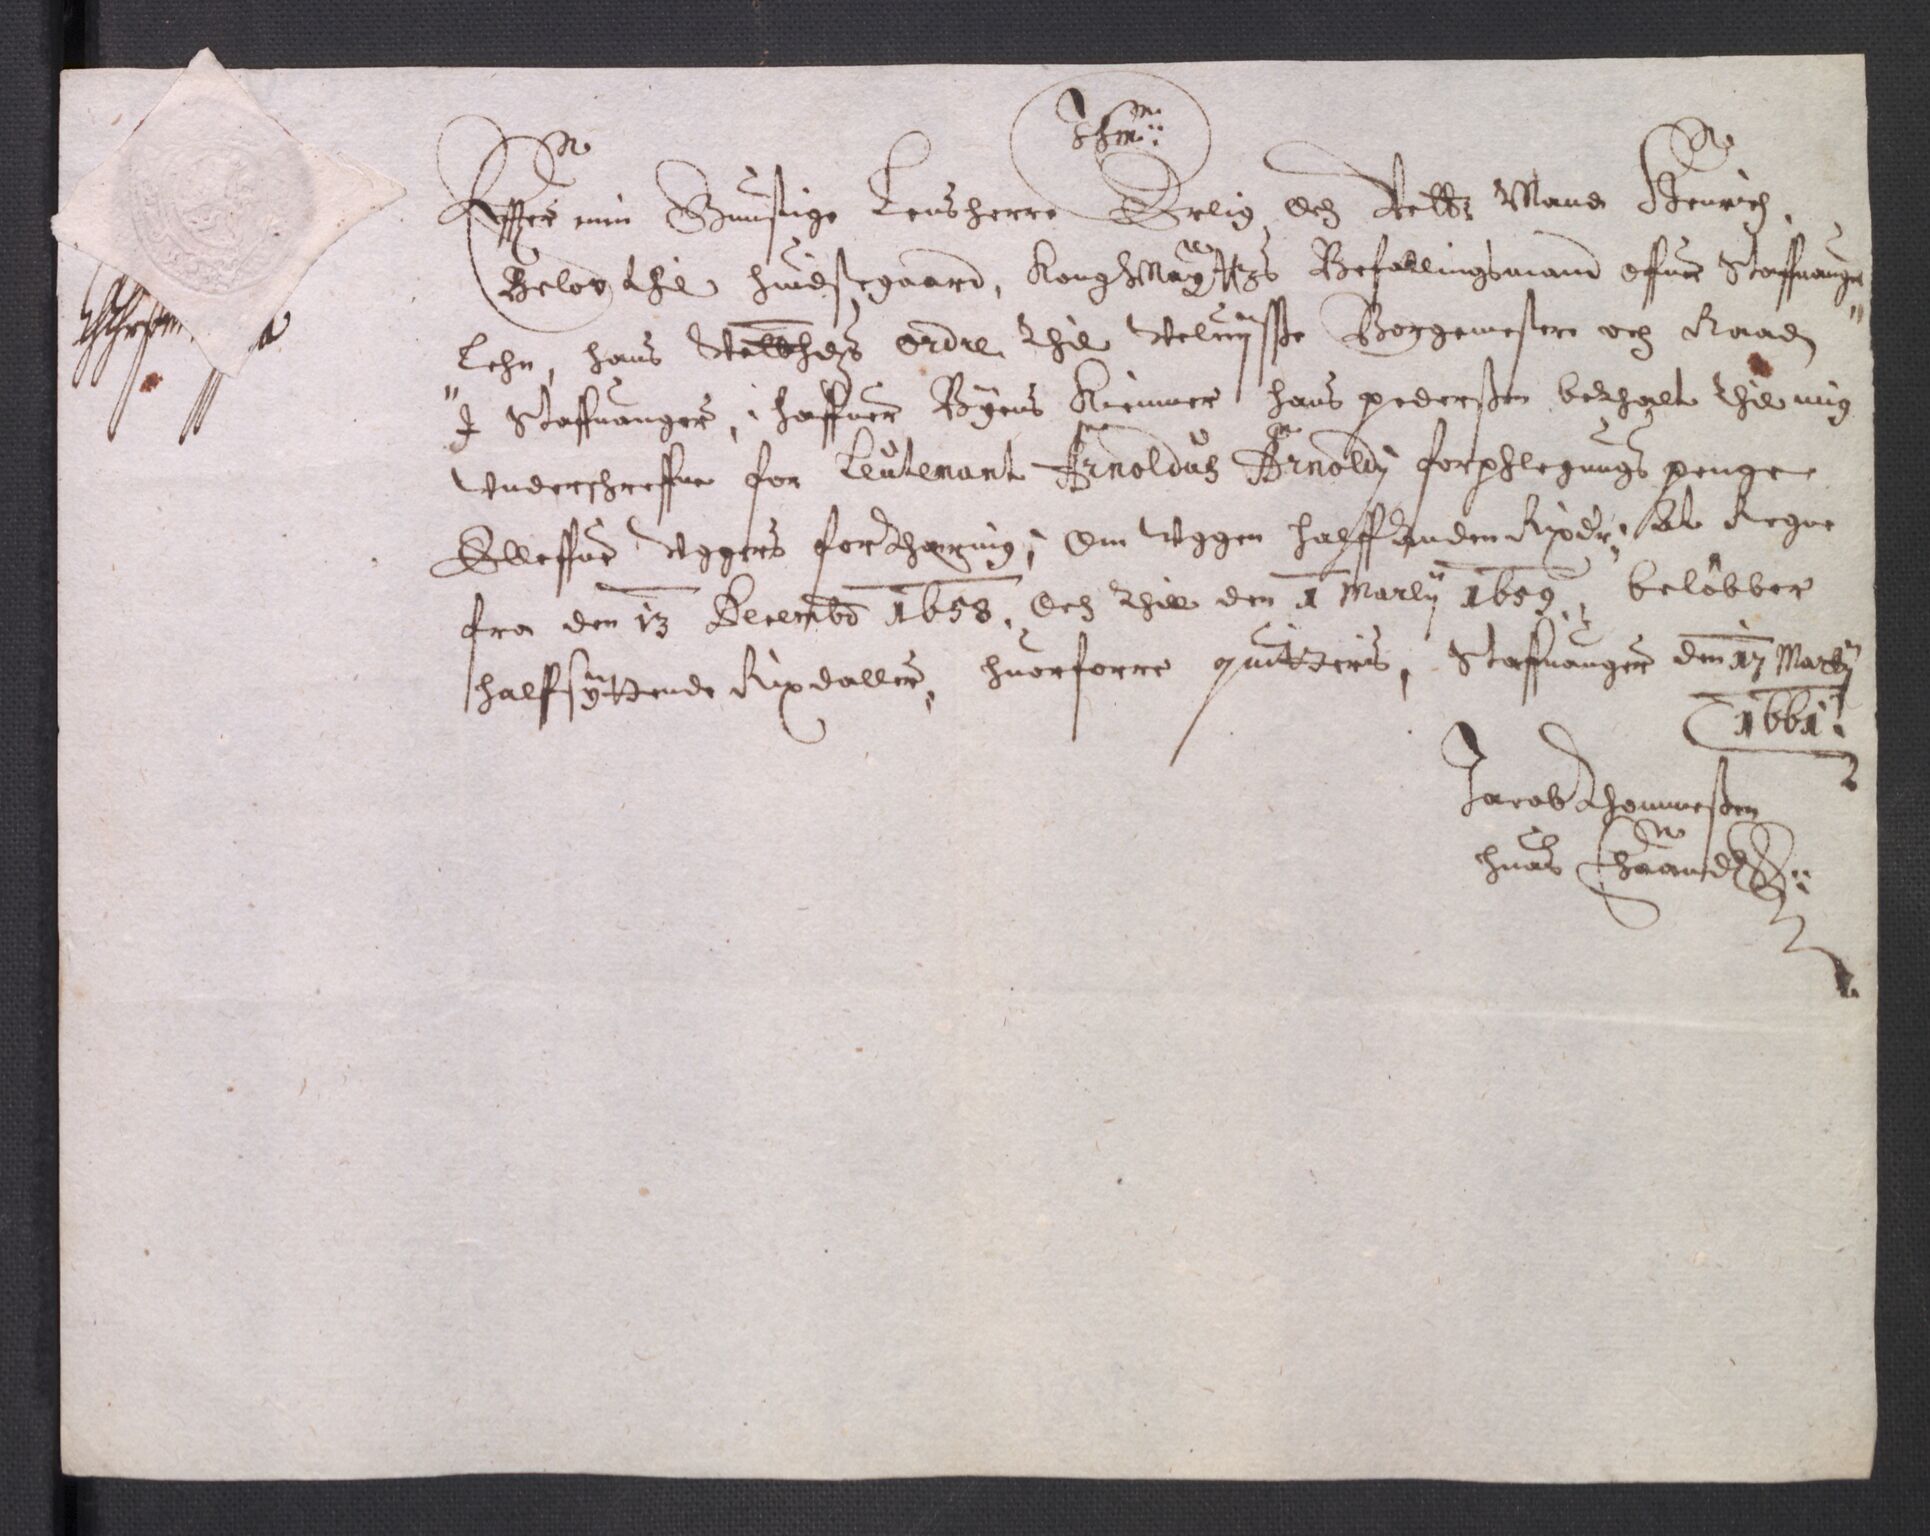 Effter min Gunstige Lensherre Erlig Och Velb: Mand Henrich
Below thil huidsegaard, Kong May:tts Befallingsmand offuer Staffuanger
Lehn, hans Velbhedts ordre thil Velwysse Borgemester och Raad
I Staffuanger, haffuer Byens Kiemner hans pedersen bethalt thil mig
Underschreffne for Leutenant Arnoldus Arnoldy forphlegungs penge
Elleffue Uggers forthæring, Om Uggen halff Anden Rixdr, At Regne
fra den 13 Decembr 1658, Och thil den 1 Marty 1659, beløbber
halff syttende Rixdaller, huorforre quitteris, Staffuanger den 17 Marty
1661
Jacob Thommesen
hans haand